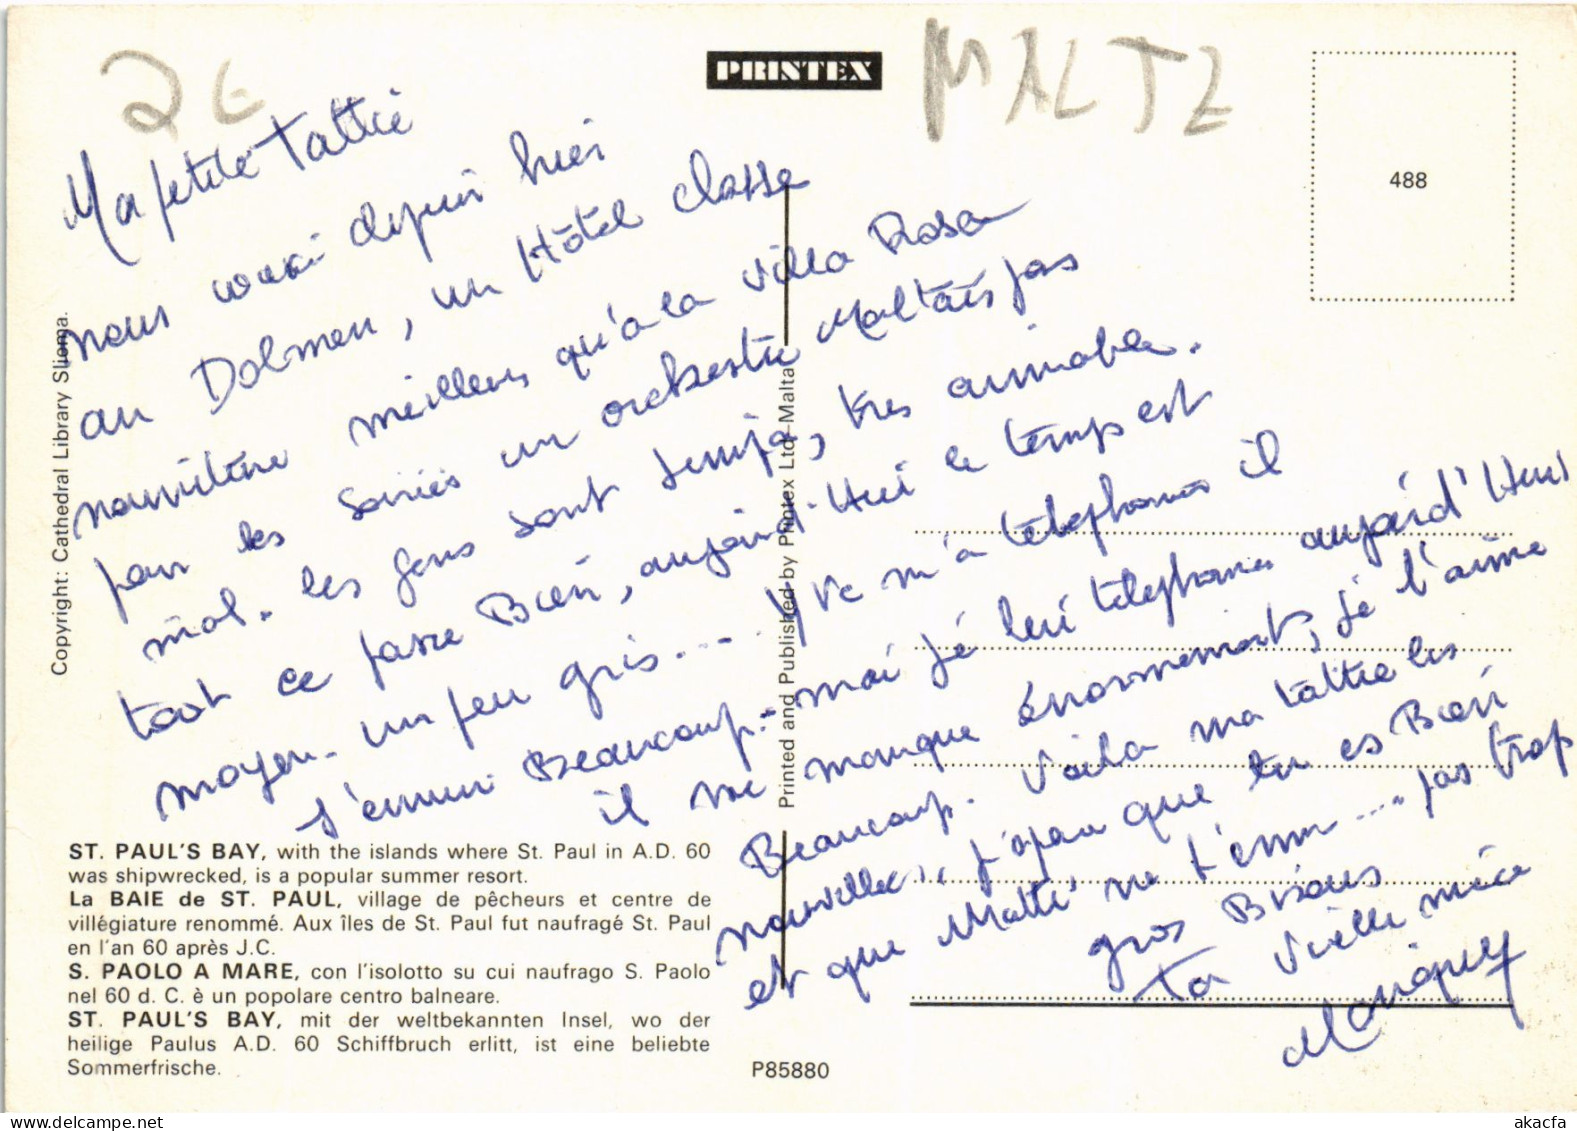 2€
MALTE
PRINTEX
488
Ma petite Tattie
nous voici depuis hier
au Dolmen, un Hôtel classe
nourriture meilleurs qu'a la Villa Rosa
pour les soirées un orchestre Maltais pas
mal. les gens sont sympa, très aimable.
tout ce passe Bien, aujourd'Hui le temps est
moyen. un peu gris... Yve m'a telephoner il
s'ennui Beaucoup.- moi jé lui telephoner aujourd'Hui
il me manque énormement, jé l'aime
Beaucoup. Voila ma tattie les
nouvelles, j'espere que tu es Bien
et que Matte ne t'ennui .... pas trop
gros Bisous
ta Vielle mica
Copyright: Cathedral Library Sliema.
Printed and Published by Printex Ltd. Malta
ST. PAUL'S BAY, with the islands where St. Paul in A.D. 60
was shipwrecked, is a popular summer resort.
La BAIE de ST. PAUL, village de pêcheurs et centre de
villégiature renommé. Aux îles de St. Paul fut naufragé St. Paul
en l'an 60 après J.C.
S. PAOLO A MARE, con l'isolotto su cui naufrago S. Paolo
nel 60 d. C. è un popolare centro balneare.
ST. PAUL'S BAY, mit der weltbekannten Insel, wo der
heilige Paulus A.D. 60 Schiffbruch erlitt, ist eine beliebte
Sommerfrische.
P85880
delcampe.net
akacfa